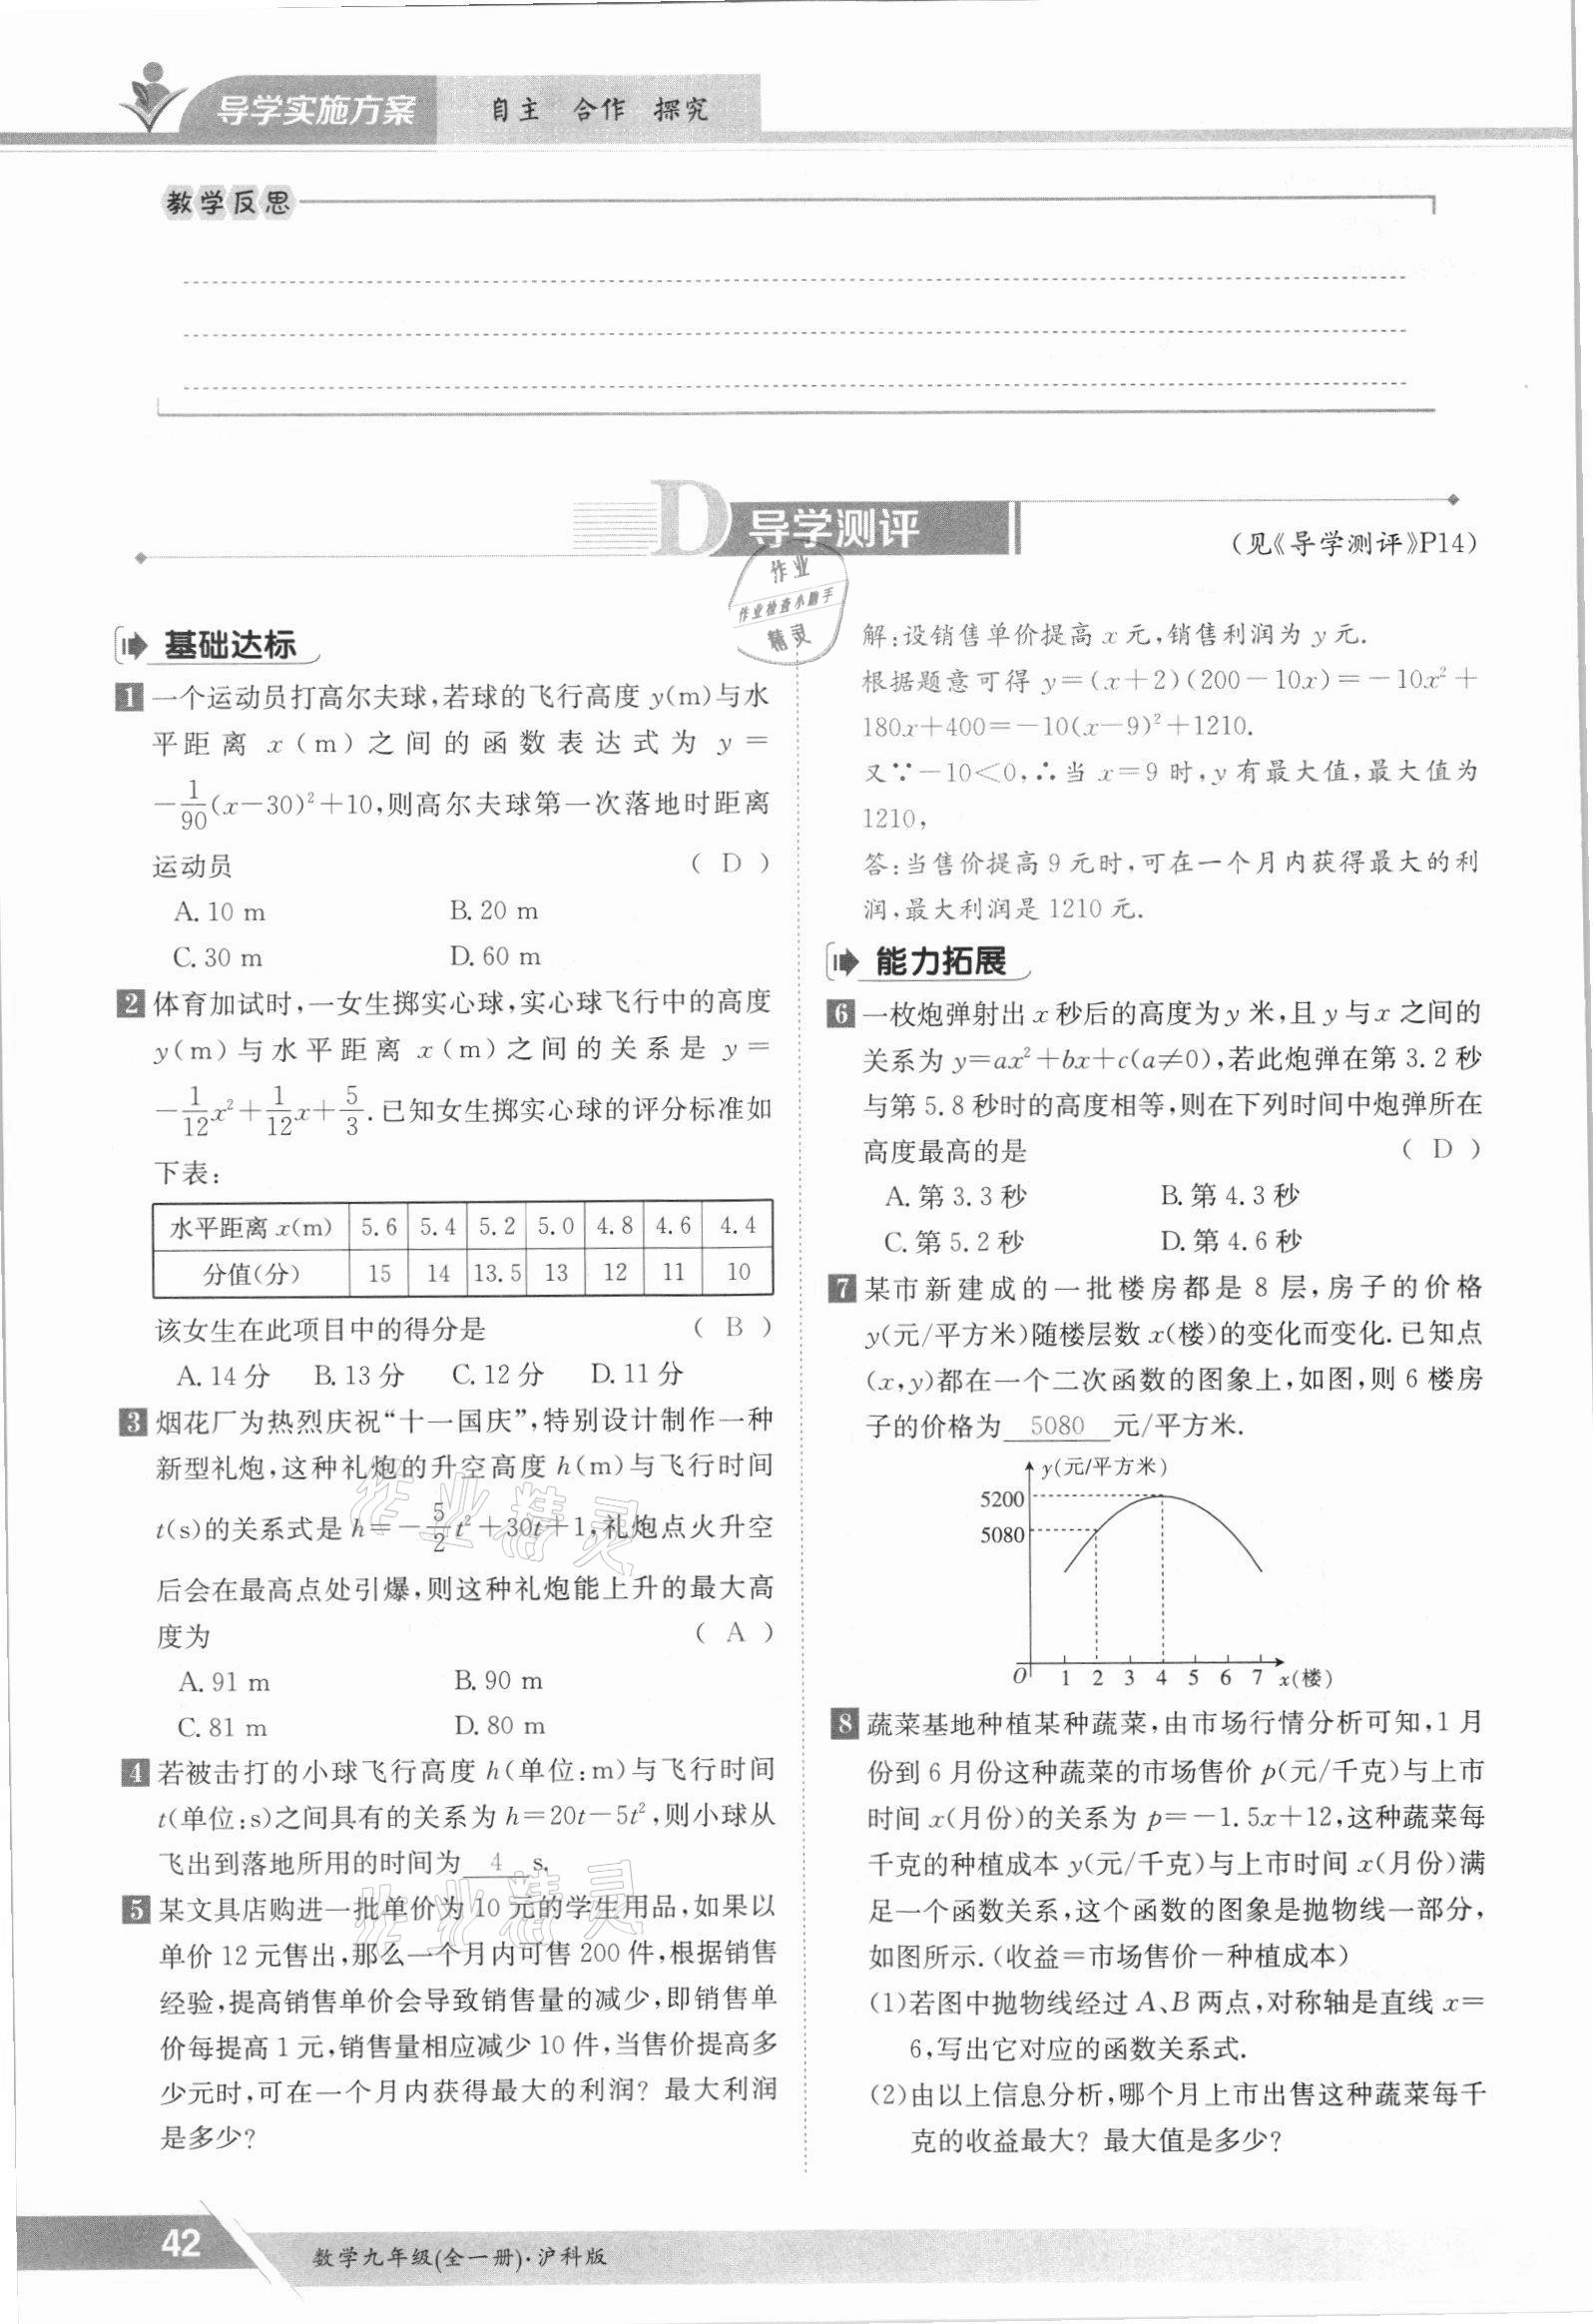 导学实施方案 自主 合作 探究
教学反思
D 导学测评
(见《导学测评》P14)
基础达标
1 一个运动员打高尔夫球,若球的飞行高度 y(m)与水
平距离 x(m)之间的函数表达式为 y=
-1/90(x-30)²+10,则高尔夫球第一次落地时距离
运动员 ( D )
A. 10 m B. 20 m
C. 30 m D. 60 m
2 体育加试时,一女生掷实心球,实心球飞行中的高度
y(m)与水平距离 x(m)之间的关系是 y=
-1/12x²+1/12x+5/3.已知女生掷实心球的评分标准如
下表:
水平距离 x(m) 5.6 5.4 5.2 5.0 4.8 4.6 4.4
分值(分) 15 14 13.5 13 12 11 10
该女生在此项目中的得分是 ( B )
A. 14分 B. 13分 C. 12分 D. 11分
3 烟花厂为热烈庆祝“十一国庆”,特别设计制作一种
新型礼炮,这种礼炮的升空高度 h(m)与飞行时间
t(s)的关系式是 h=-5/2t²+30t+1,礼炮点火升空
后会在最高点处引爆,则这种礼炮能上升的最大高
度为 ( A )
A. 91 m B. 90 m
C. 81 m D. 80 m
4 若被击打的小球飞行高度 h(单位:m)与飞行时间
t(单位:s)之间具有的关系为 h=20t-5t²,则小球从
飞出到落地所用的时间为 4 s.
5 某文具店购进一批单价为 10 元的学生用品,如果以
单价 12 元售出,那么一个月内可售 200 件,根据销售
经验,提高销售单价会导致销售量的减少,即销售单
价每提高 1 元,销售量相应减少 10 件,当售价提高多
少元时,可在一个月内获得最大的利润? 最大利润
是多少?
解:设销售单价提高 x 元,销售利润为 y 元.
根据题意可得 y=(x+2)(200-10x)=-10x²+
180x+400=-10(x-9)²+1210.
又∵-10<0,∴当 x=9 时,y 有最大值,最大值为
1210,
答:当售价提高 9 元时,可在一个月内获得最大的利
润,最大利润是 1210 元.
能力拓展
6 一枚炮弹射出 x 秒后的高度为 y 米,且 y 与 x 之间的
关系为 y=ax²+bx+c(a≠0),若此炮弹在第 3.2 秒
与第 5.8 秒时的高度相等,则在下列时间中炮弹所在
高度最高的是 ( D )
A. 第 3.3 秒 B. 第 4.3 秒
C. 第 5.2 秒 D. 第 4.6 秒
7 某市新建成的一批楼房都是 8 层,房子的价格
y(元/平方米)随楼层数 x(楼)的变化而变化.已知点
(x,y)都在一个二次函数的图象上,如图,则 6 楼房
子的价格为 5080 元/平方米.
y(元/平方米)
5200
5080
O 1 2 3 4 5 6 7 x(楼)
8 蔬菜基地种植某种蔬菜,由市场行情分析可知,1 月
份到 6 月份这种蔬菜的市场售价 p(元/千克)与上市
时间 x(月份)的关系为 p=-1.5x+12,这种蔬菜每
千克的种植成本 y(元/千克)与上市时间 x(月份)满
足一个函数关系,这个函数的图象是抛物线一部分,
如图所示.(收益=市场售价-种植成本)
(1)若图中抛物线经过 A、B 两点,对称轴是直线 x=
6,写出它对应的函数关系式.
(2)由以上信息分析,哪个月上市出售这种蔬菜每千
克的收益最大? 最大值是多少?
作业
作业检查小助手
精灵
作业精灵
作业精灵
42 数学九年级(全一册)·沪科版